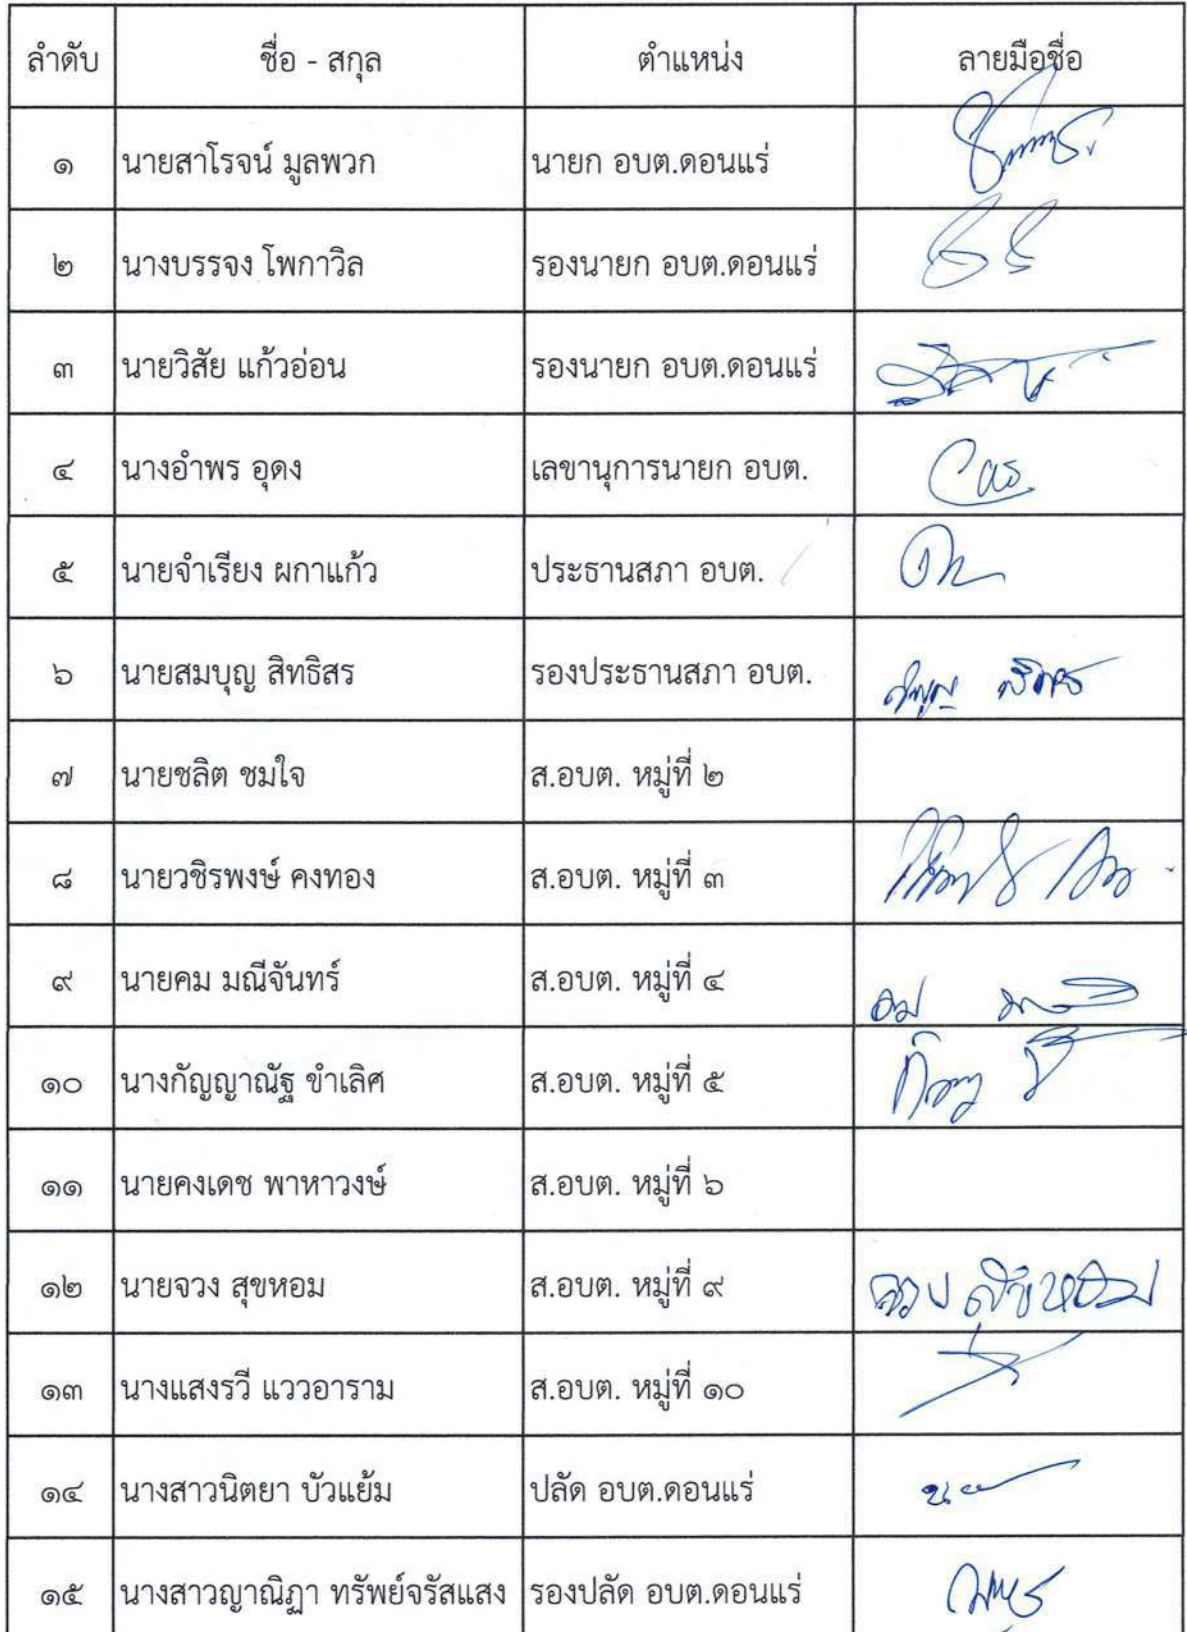 ลำดับ ชื่อ - สกุล ตำแหน่ง ลายมือชื่อ
๑ นายสาโรจน์ มูลพวก นายก อบต.ดอนแร่
๒ นางบรรจง โพกาวิล รองนายก อบต.ดอนแร่
๓ นายวิสัย แก้วอ่อน รองนายก อบต.ดอนแร่
๔ นางอำพร อุดง เลขานุการนายก อบต.
๕ นายจำเรียง ผกาแก้ว ประธานสภา อบต.
๖ นายสมบุญ สิทธิสร รองประธานสภา อบต.
๗ นายชลิต ชมใจ ส.อบต. หมู่ที่ ๒
๘ นายวชิรพงษ์ คงทอง ส.อบต. หมู่ที่ ๓
๙ นายคม มณีจันทร์ ส.อบต. หมู่ที่ ๔
๑๐ นางกัญญาณัฐ ขำเลิศ ส.อบต. หมู่ที่ ๕
๑๑ นายคงเดช พาหาวงษ์ ส.อบต. หมู่ที่ ๖
๑๒ นายจวง สุขหอม ส.อบต. หมู่ที่ ๙ จวง สุขหอม
๑๓ นางแสงรวี แววอาราม ส.อบต. หมู่ที่ ๑๐
๑๔ นางสาวนิตยา บัวแย้ม ปลัด อบต.ดอนแร่
๑๕ นางสาวญาณิฏา ทรัพย์จรัสแสง รองปลัด อบต.ดอนแร่